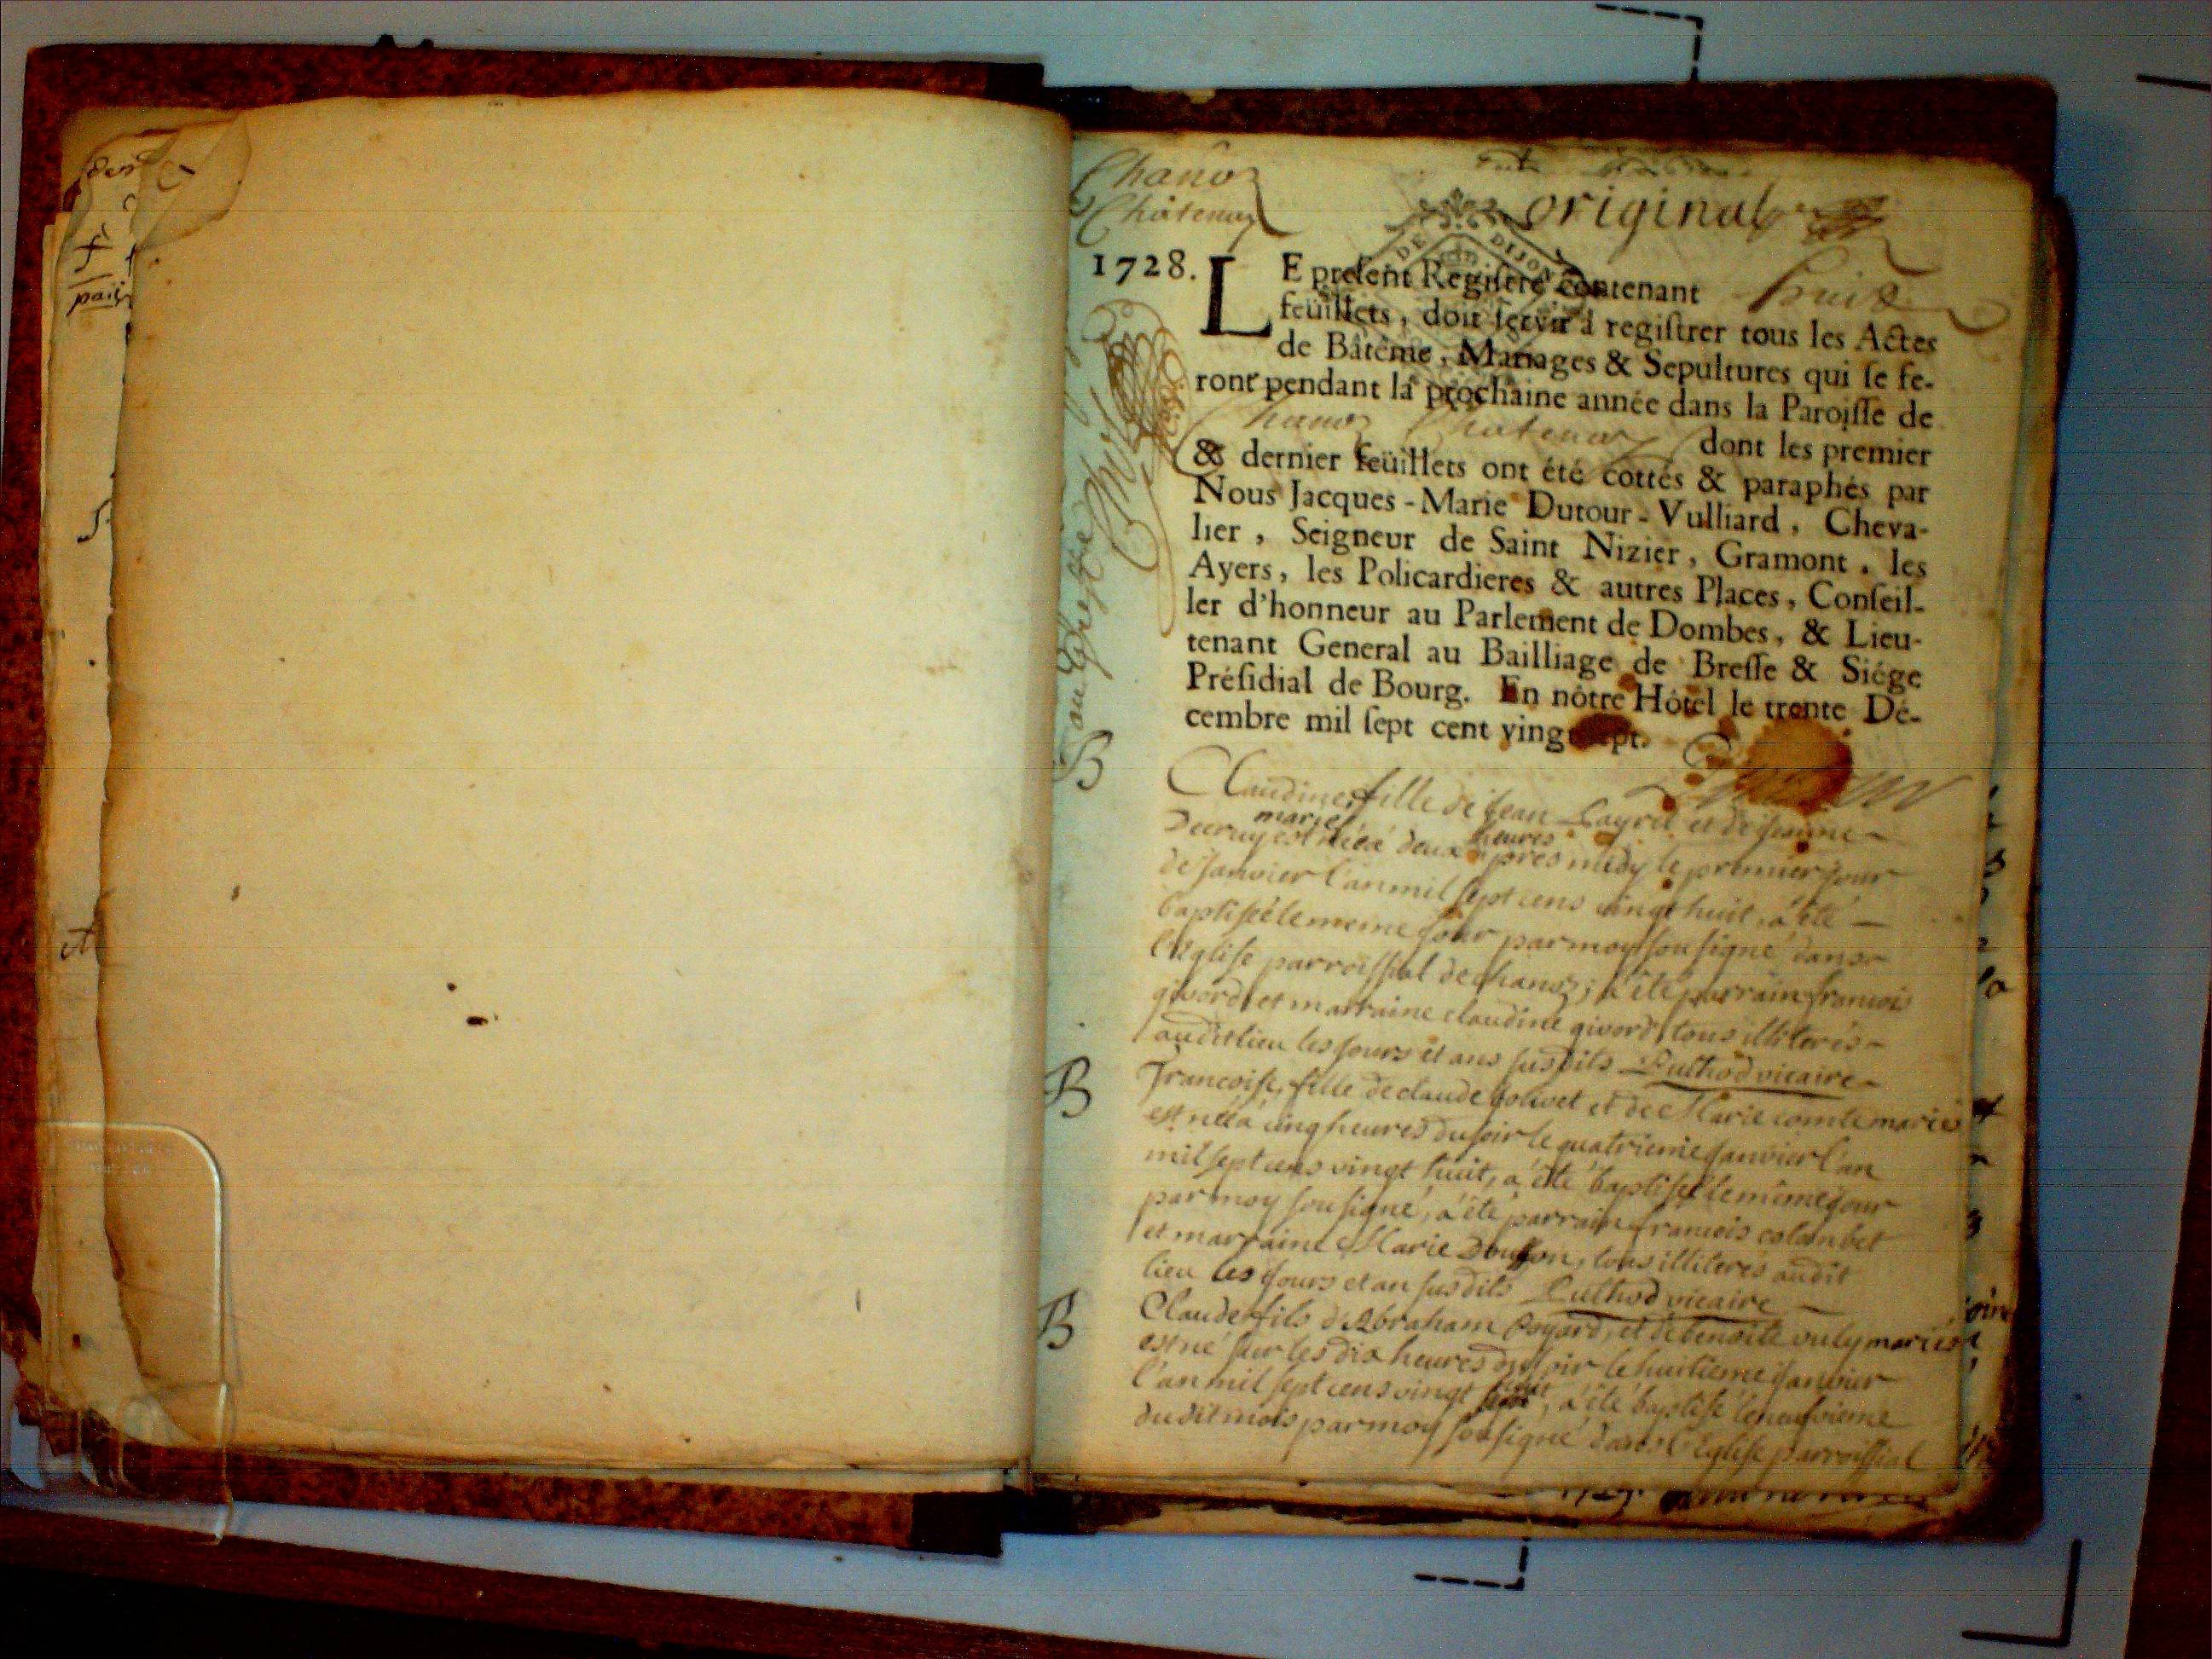 Chanoz
Châtenay
original
DE DIJON
1728.
LE preſent Regiſtre contenant huit
feüillets, doit ſervir à regiſtrer tous les Actes
de Bâtême, Mariages & Sepultures qui ſe fe-
ront pendant la prochaine année dans la Paroiſſe de
Chanoz Chatenay dont les premier
& dernier feüillets ont été cottés & paraphés par
Nous Jacques-Marie Dutour-Vulliard, Cheva-
lier, Seigneur de Saint Nizier, Gramont, les
Ayers, les Policardieres & autres Places, Conſeil-
ler d'honneur au Parlement de Dombes, & Lieu-
tenant General au Bailliage de Breſſe & Siége
Préſidial de Bourg. En nôtre Hôtel le trente Dé-
cembre mil ſept cent vingt ſept.
B
Claudine, fille de Jean et de
mariés heures
est née à deux après midy le premier jour
de Janvier l'an mil sept cens vingt huit, a été
baptisée le meme jour par moy sousigné dans
l'Eglise parroissial de chanoz; a été parrain francois
givord, et marraine claudine givord, tous illiterés
audit lieu les jours et ans susdits Puthod vicaire
B
Francoise, fille de claude et de Marie comte mariés
est née à cinq heures du soir le quatrieme Janvier l'an
mil sept cens vingt huit, a été baptisée le même jour
par moy sousigné, a été parrain francois colombet
et marraine Marie tous illiterés audit
lieu les jours et an susdits Puthod vicaire
B
Claude fils d'Abraham et de benoite vuly mariés
est né sur les dix heures du soir le huitieme Janvier
l'an mil sept cens vingt huit, a été baptisé le neufvieme
dudit mois par moy sousigné dans l'Eglise parroissial